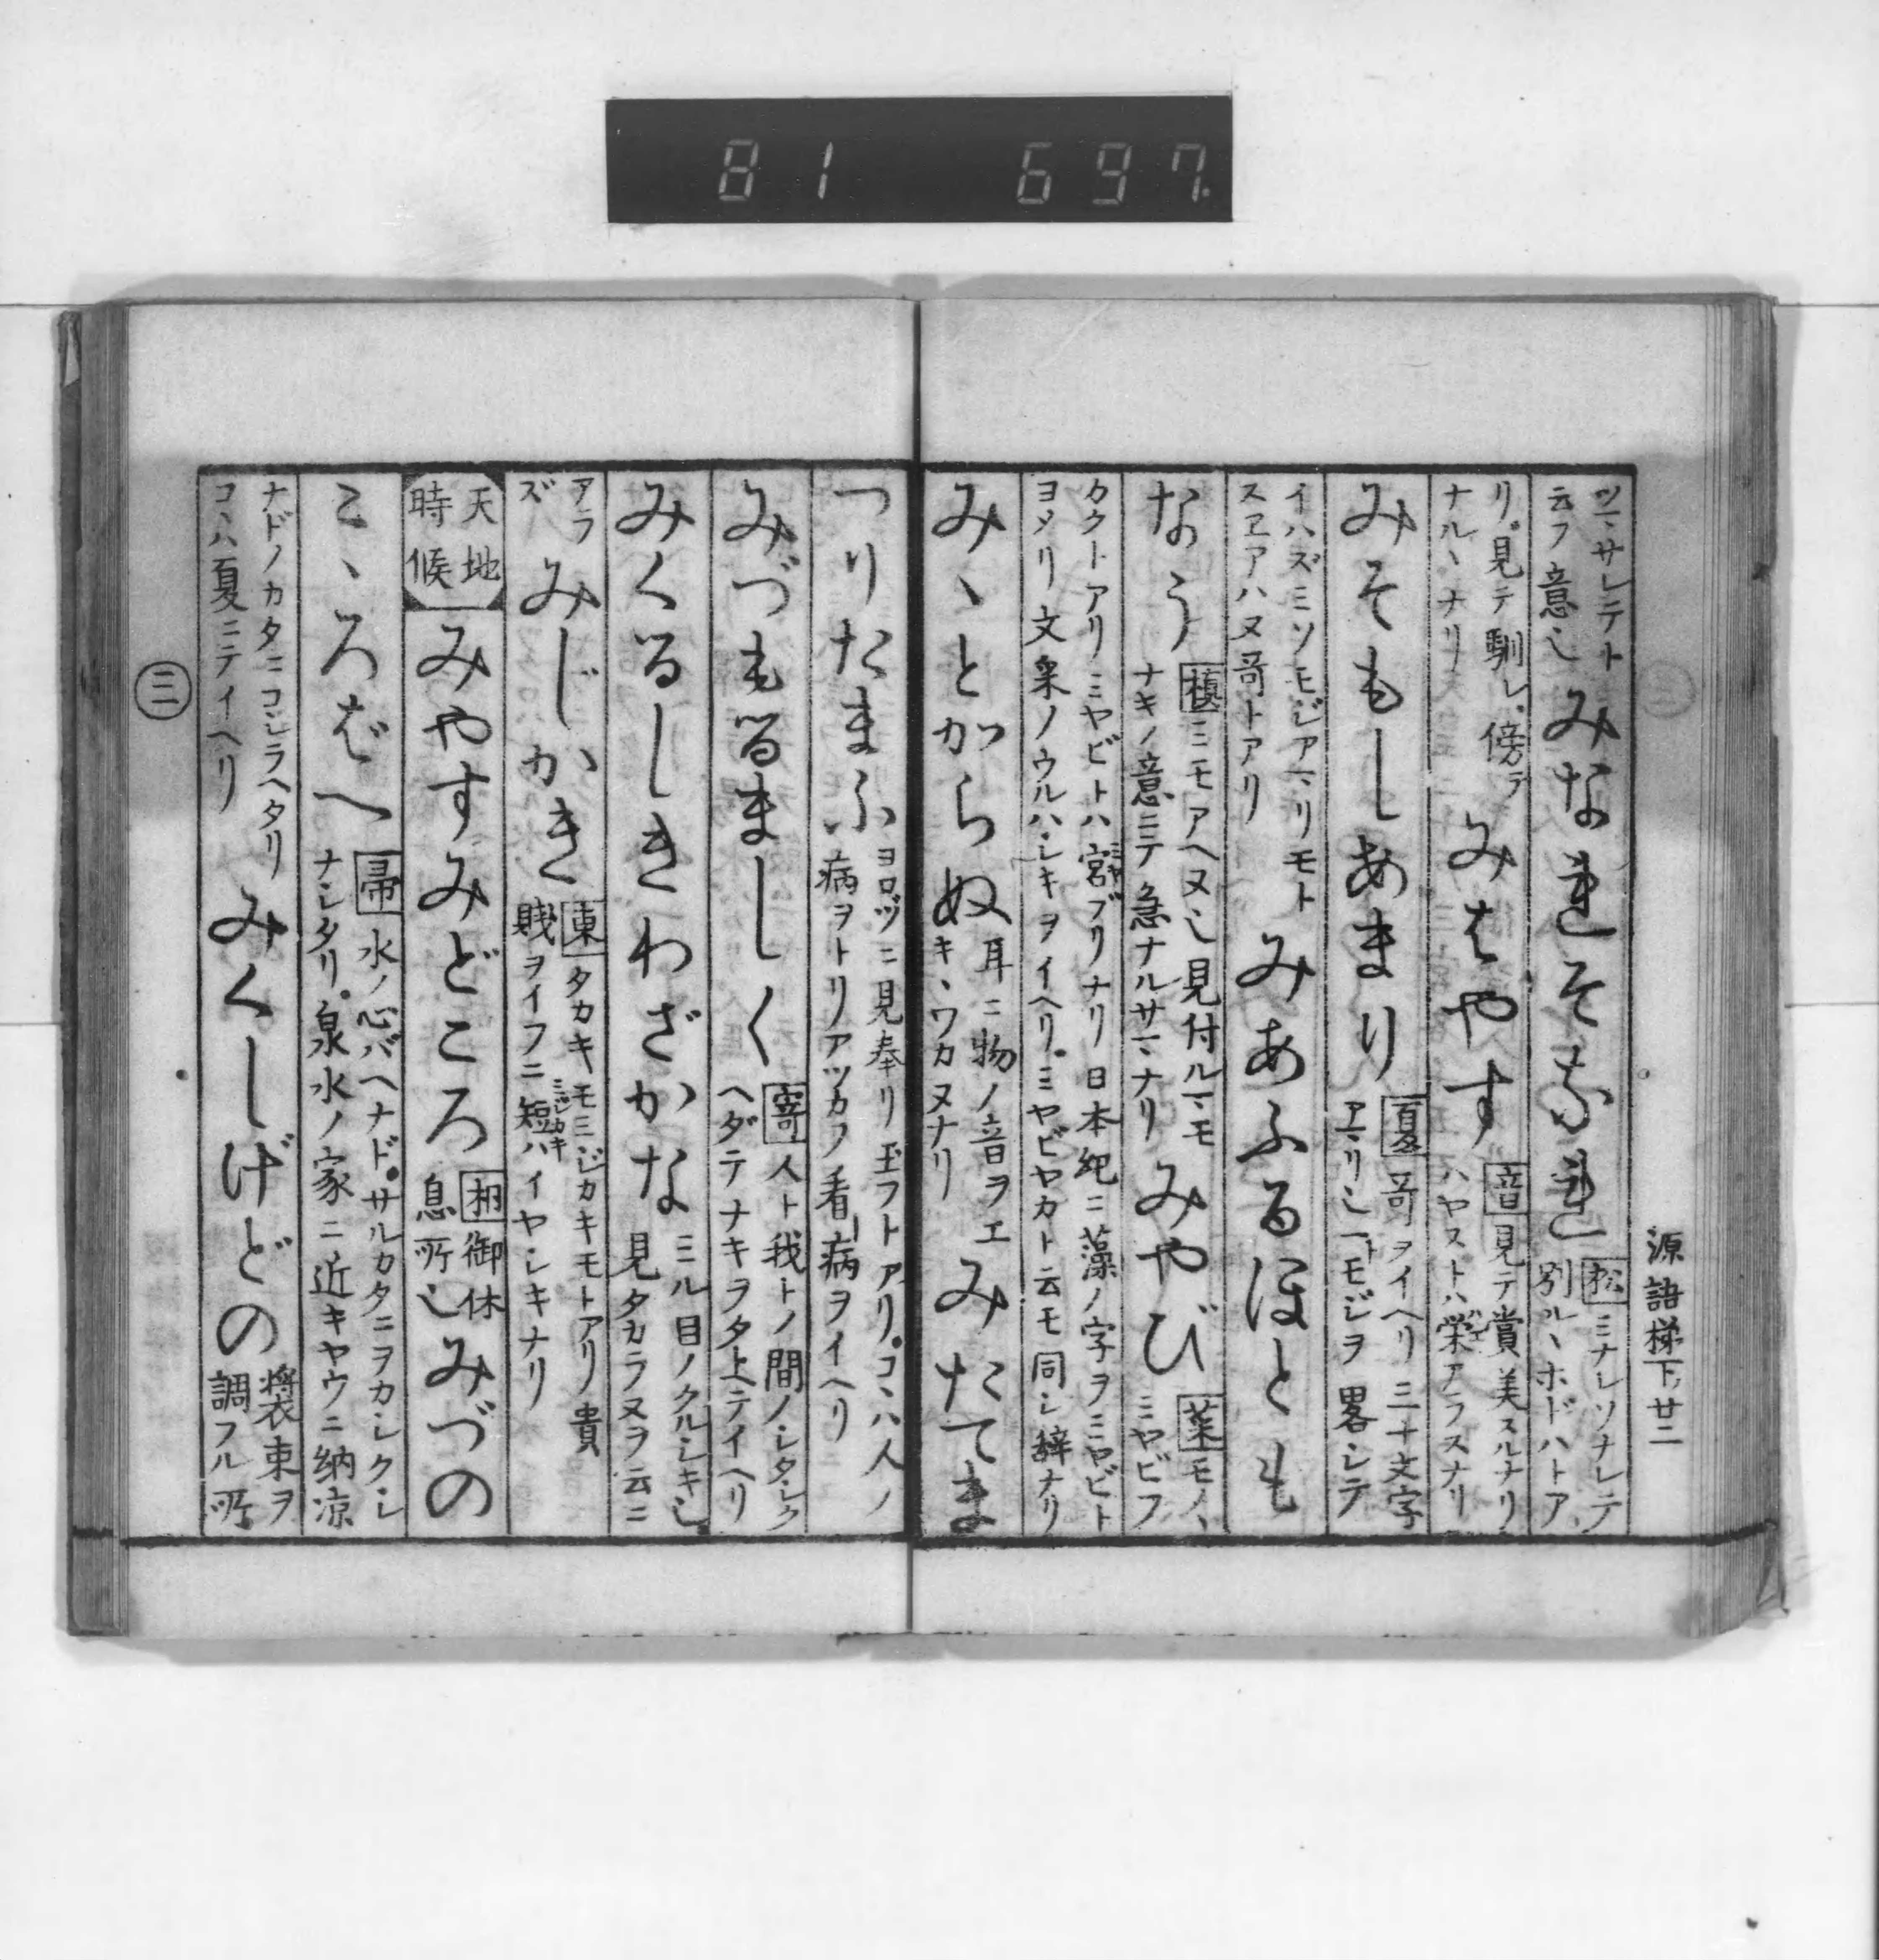 81 697.
源語梯 下ノ廿二
ツヽサレテト
云フ意也
みなれそなれ
松 ミナレソナレテ
別ルヽホドハトア
リ。見テ馴レ。傍テ
ナルヽナリ
みはやす
音 見テ賞美スルナリ
ハヤストハ栄アラスナリ
みそもしあまり
夏 哥ヲイヘリ三十文字
アマリ也一モジヲ畧シテ
イハズミソモジアマリモト
スヱアハヌ哥トアリ
みあふるほとも
なう
槙 ミモアヘヌ也見付ルマモ
ナキノ意ニテ急ナルサマナリ
みやび
葉 モノヽ
ミヤビフ
カクトアリミヤビトハ宮ブリナリ日本紀ニ藻ノ字ヲミヤビト
ヨメリ文釆ノウルハシキヲイヘリ。ミヤビヤカト云モ同シ辞ナリ
みゝとがらぬ
耳ニ物ノ音ヲエ
キヽワカヌナリ
みたてま
つりたまふ
ヨロヅニ見奉リ玉フトアリ。コヽハ人ノ
病ヲトリアツカフ看病ヲイヘリ
みづもるましく
寄 人ト我トノ間ノシタシク
ヘダテナキヲタトヘテイヘリ
みくるしきわざかな
ミル目ノクルシキ也
見タカラヌヲ云ニ
アラ
ズ
みじかき
東 タカキモミジカキモトアリ貴
賎ヲイフニ短ハイヤシキナリ
ミジカキ
天地
時候
みやすみどころ
栁 御休
息所也
みづの
こゝろばへ
帚 水ノ心バヘナド。サルカタニヲカシクシ
ナシタリ。泉水ノ家ニ近キヤウニ納凉
ナドノカタニコシラヘタリ
コヽハ夏ニテイヘリ
みくしげどの
裝束ヲ
調フル所
三